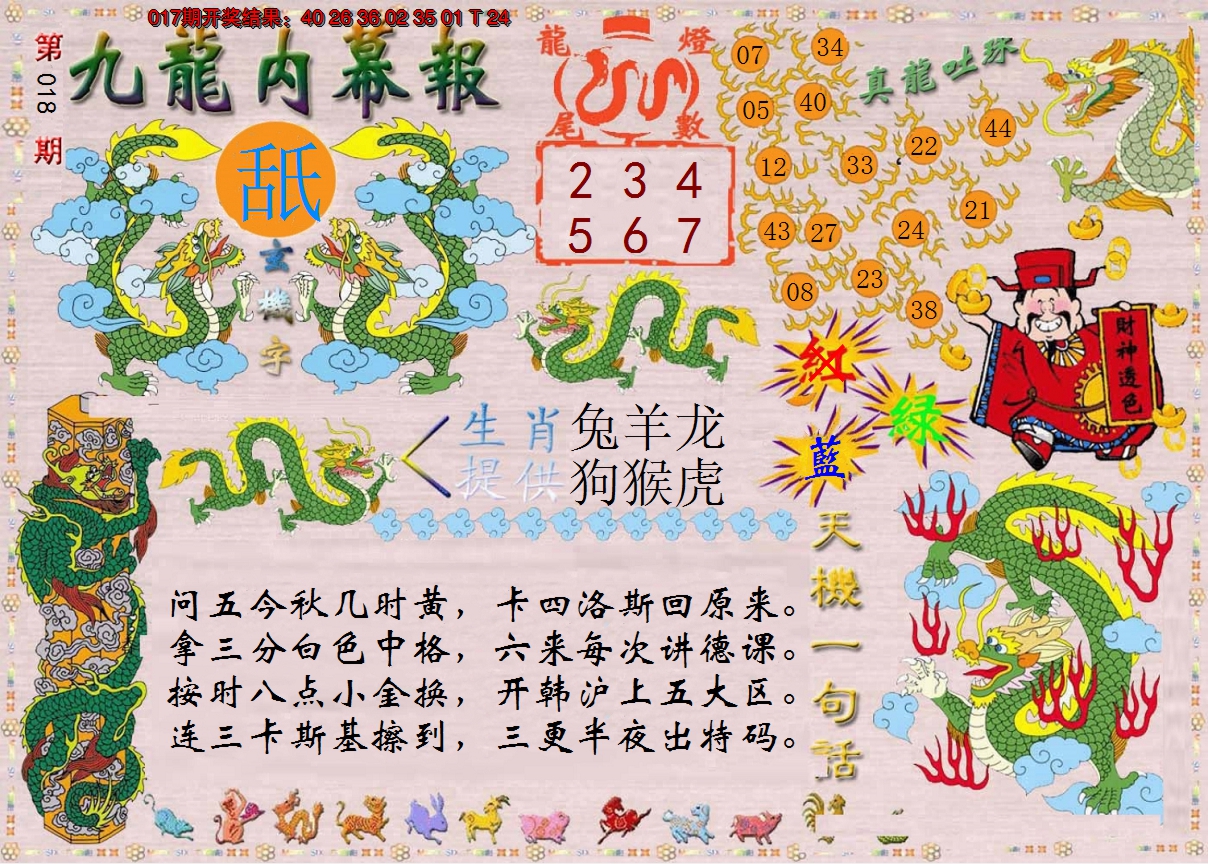 017期开奖结果：40 26 36 02 35 01 T 24
第018期
九龍内幕報
舐
玄機字
龍燈
尾數
2 3 4
5 6 7
真龍吐珠
07 34
05 40
12 33 22 44
43 27 24 21
08 23 38
財神透色
紅
綠
藍
生肖 兔羊龙
提供 狗猴虎
天機一句話
问五今秋几时黄，卡四洛斯回原来。
拿三分白色中格，六来每次讲德课。
按时八点小金换，开韩沪上五大区。
连三卡斯基擦到，三更半夜出特码。